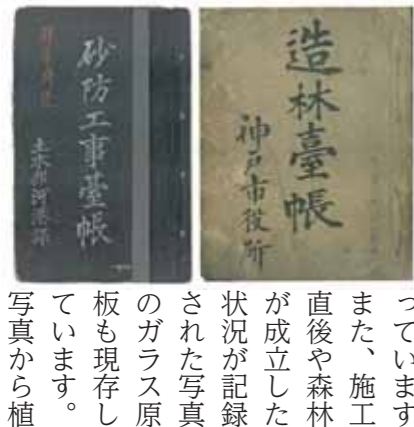 造林臺帳
神戸市役所
砂防工事臺帳
土木部河港課
っています
また、施工
直後や森林
が成立した
状況が記録
された写真
のガラス原
板も現存し
ています。
写真から植